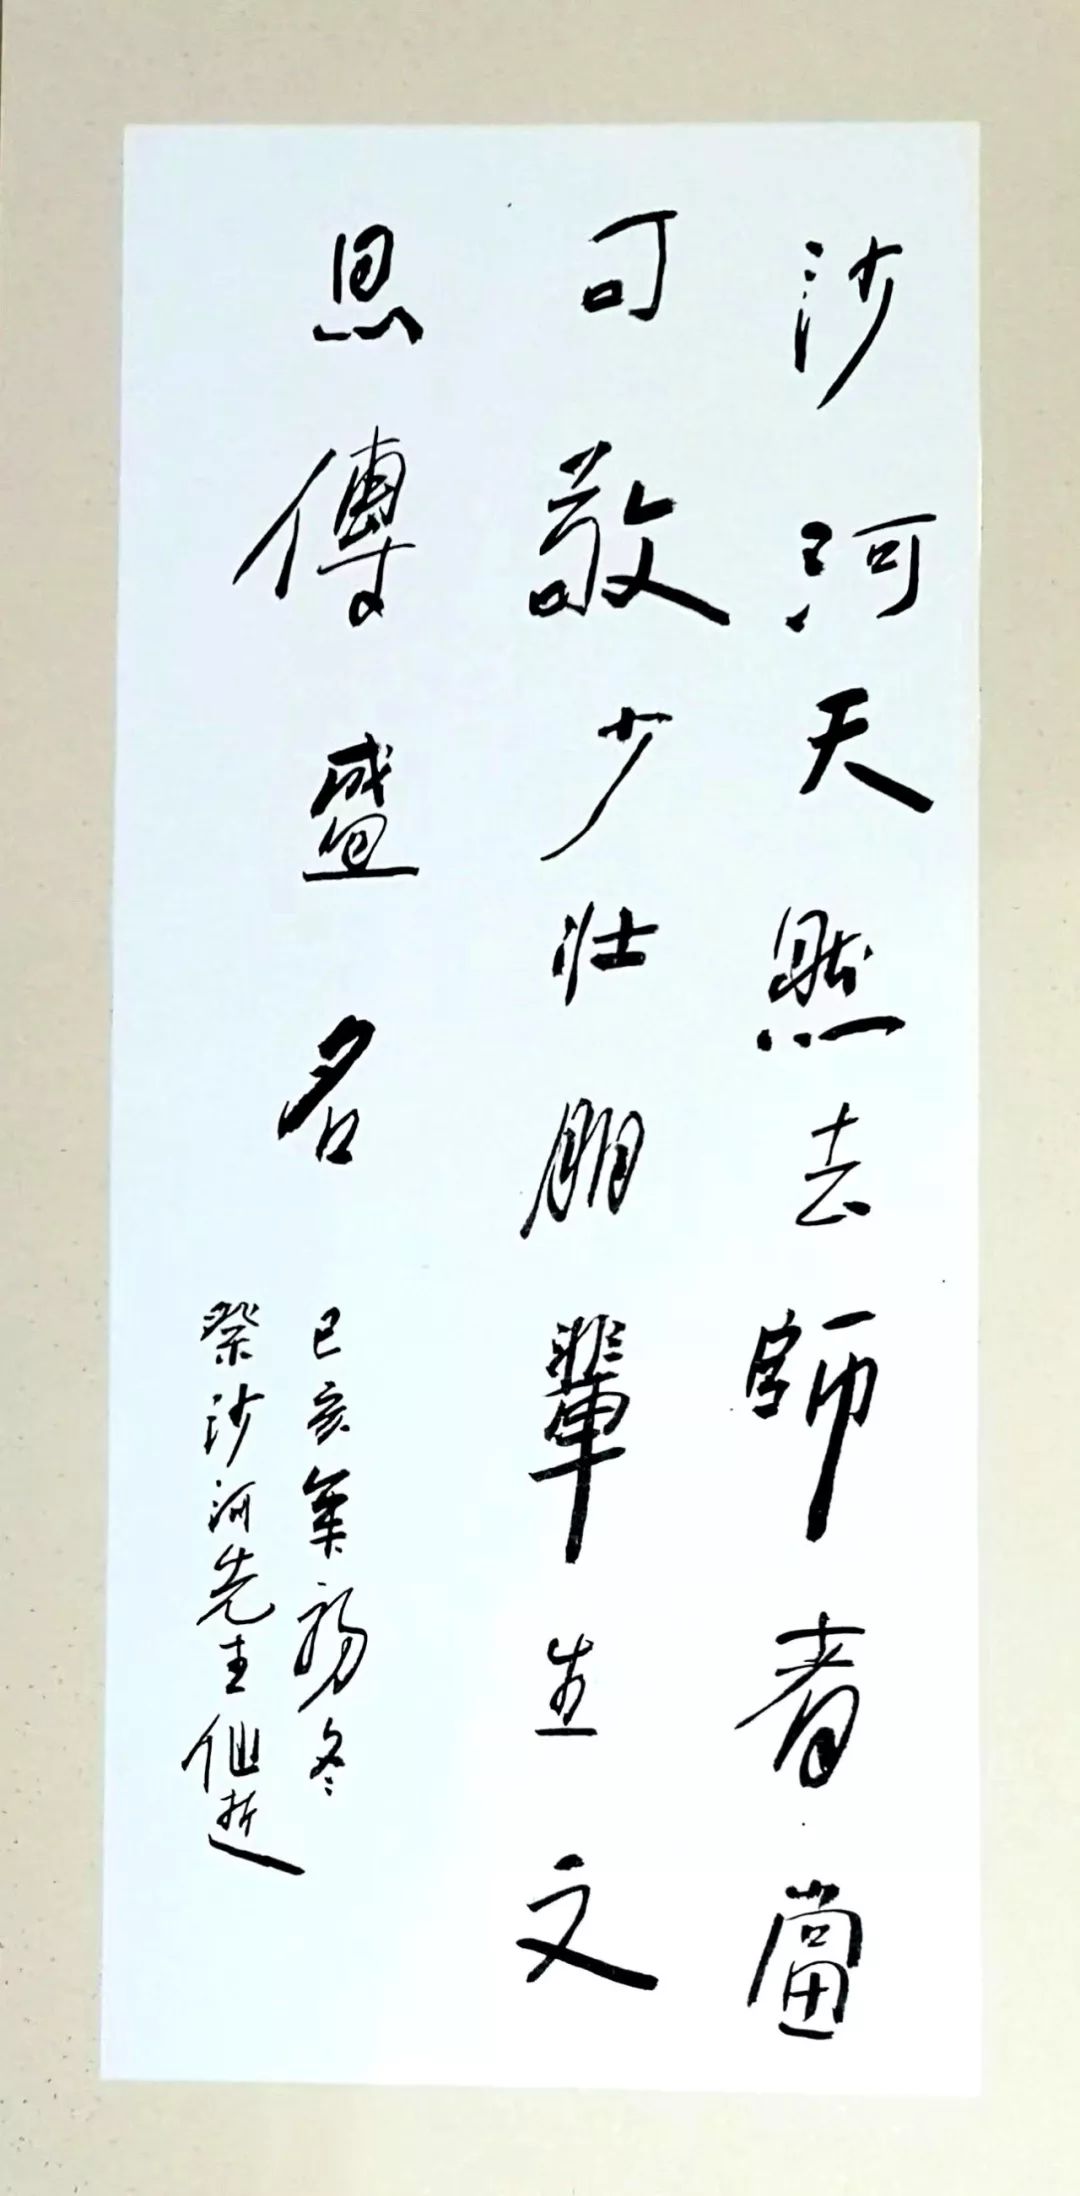 沙河天然去師者當
可敬少壯朋輩生文
恩傳盛名
己亥年初冬
祭沙河先生仙逝